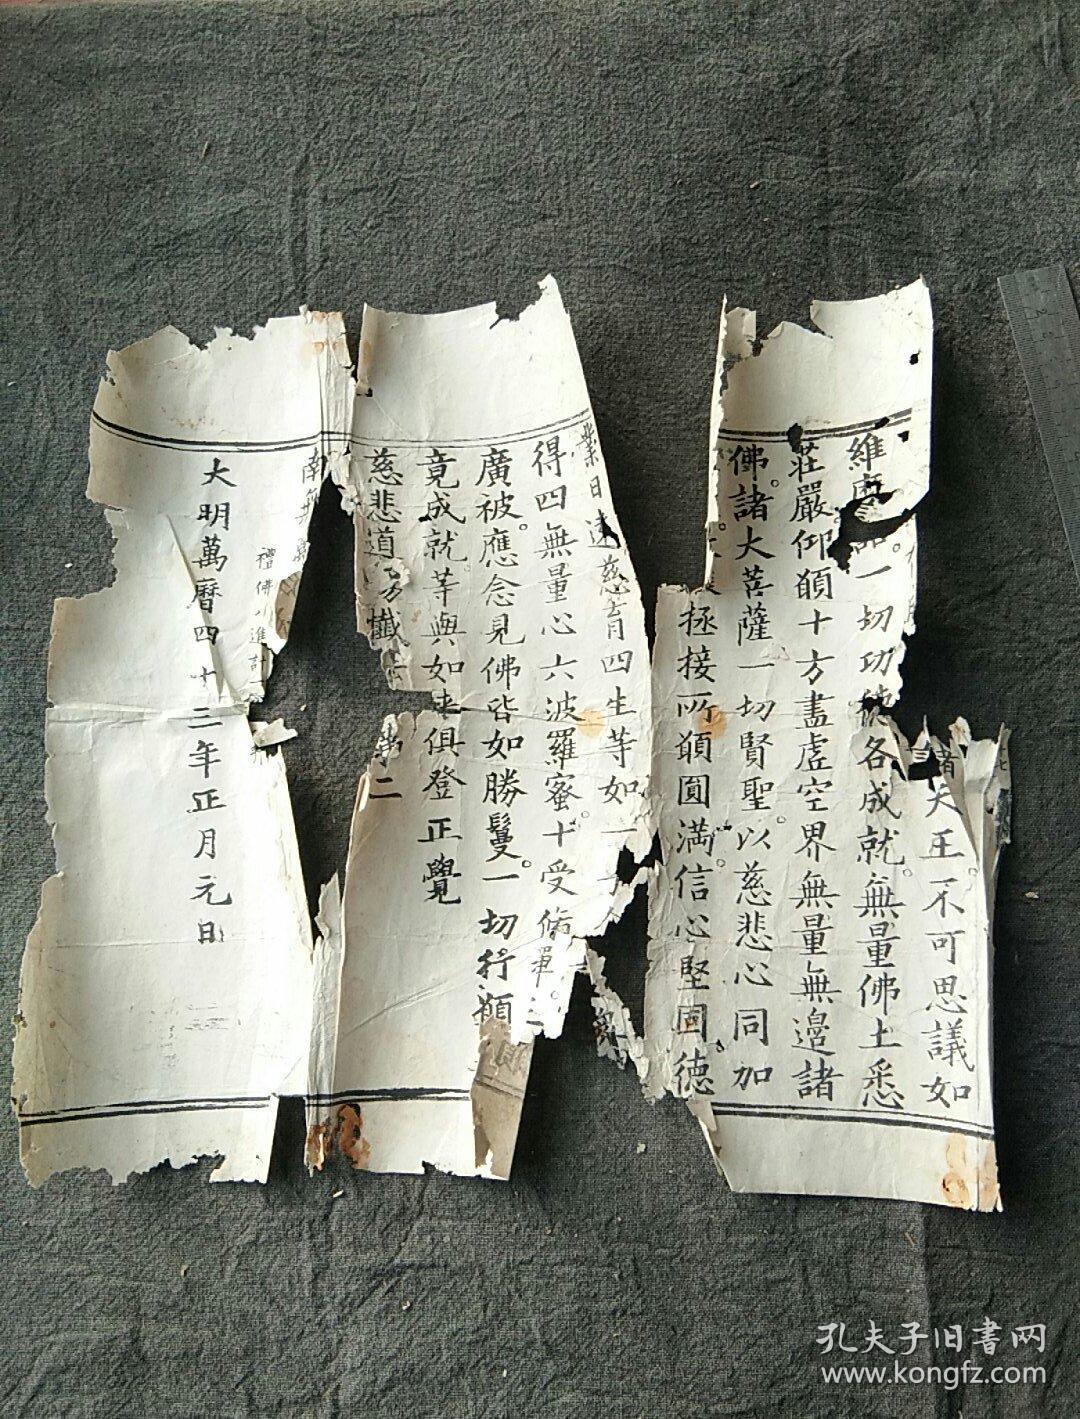 諸天王。不可思議如
維摩詰。一切功德各成就。無量佛土悉
莊嚴仰願十方盡虛空界無量無邊諸
佛。諸大菩薩一切賢聖。以慈悲心同加
拯接所願圓滿。信心堅固。德
業日遠慈育四生等如一子
得四無量心六波羅蜜。十受脩單
廣被。應念見佛皆如勝鬘。一切行願
竟成就。等與如來俱登正覺
慈悲道場懺 第二
南無
禮佛 進
大明萬曆四十三年正月元日
孔夫子旧書网
www.kongfz.com